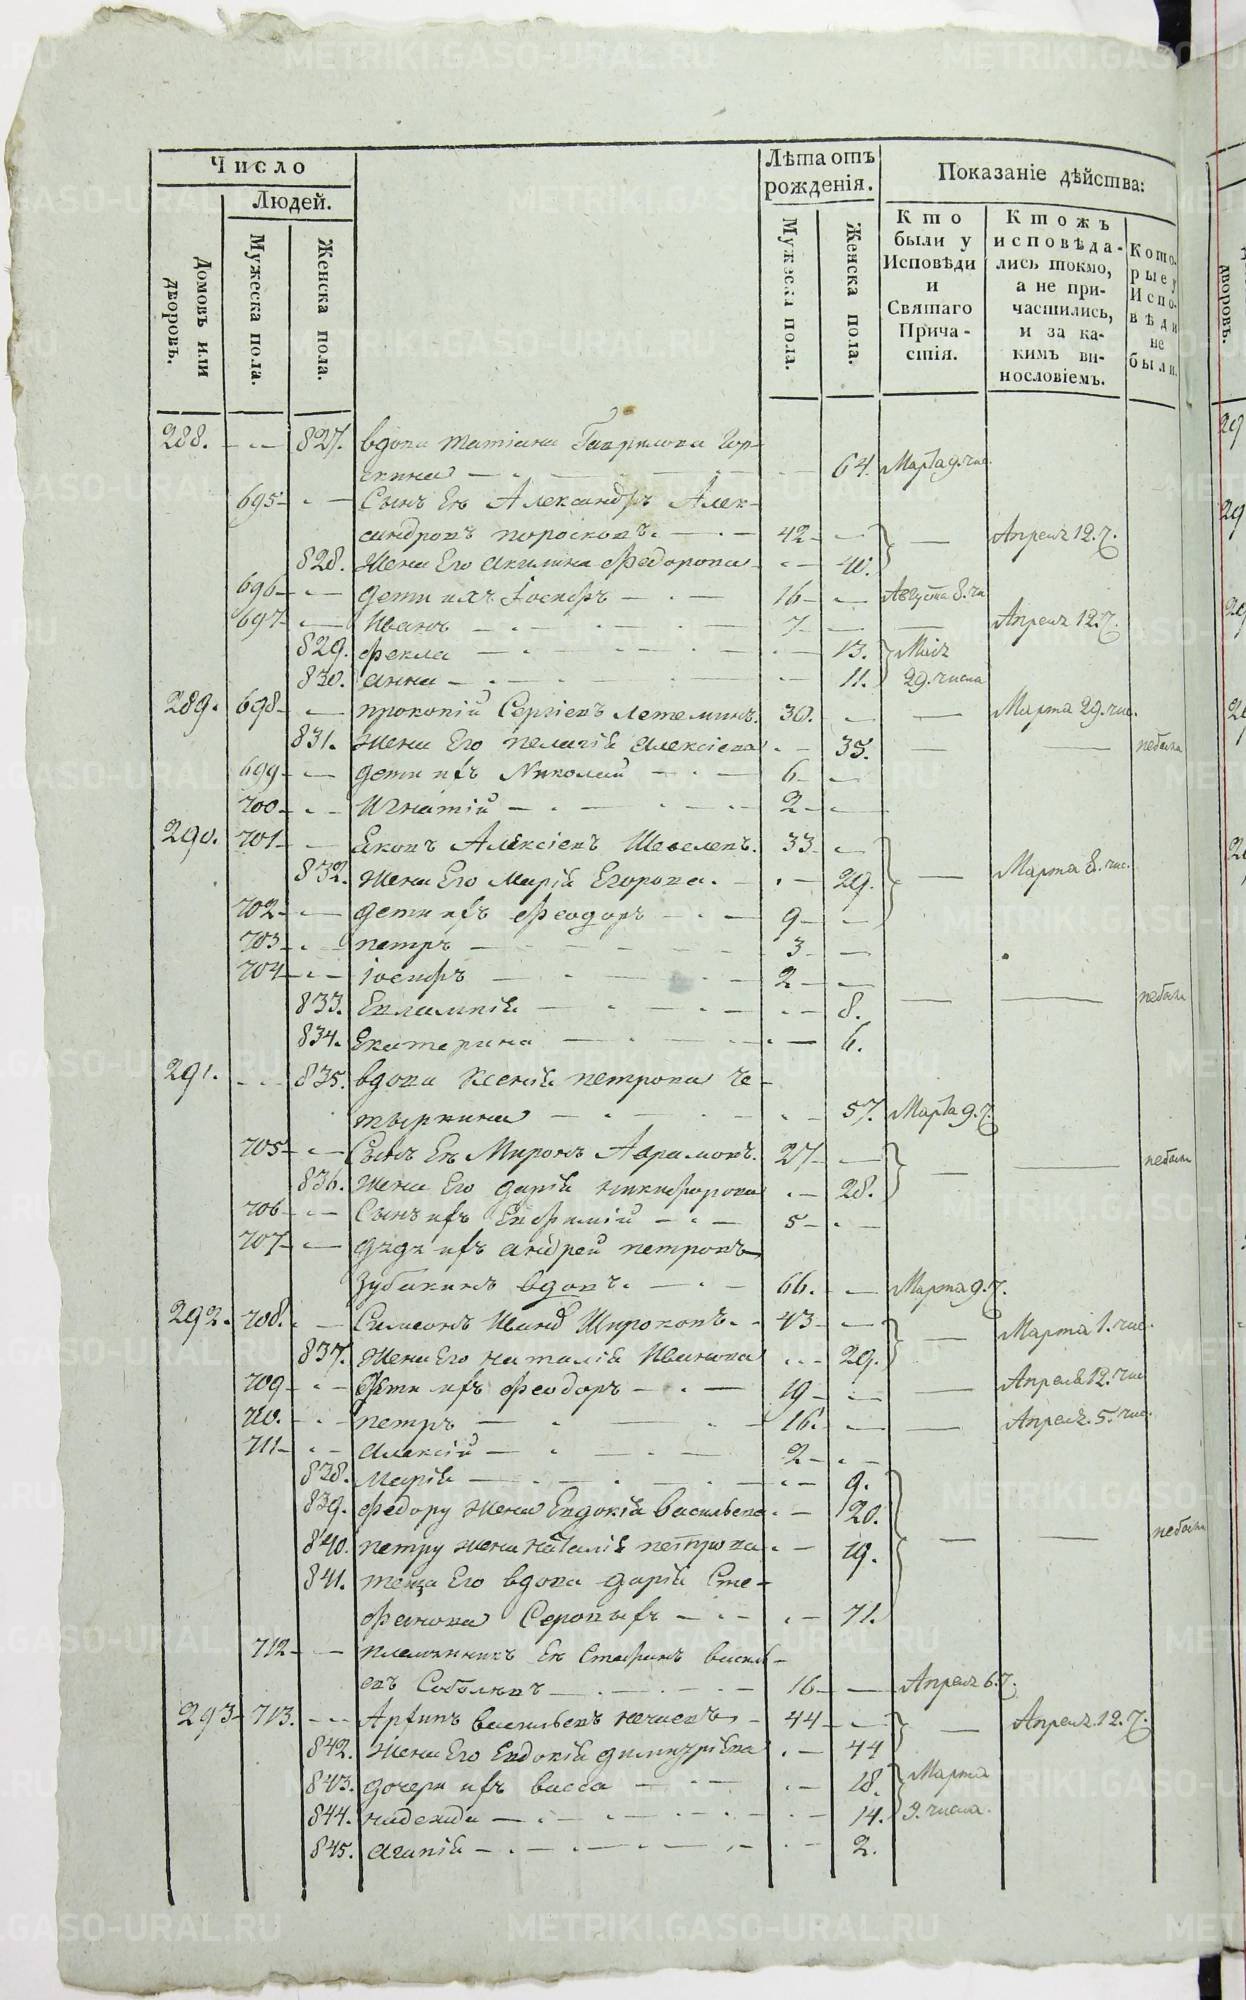 Число
Людей.
Домовъ или дворовъ.
Мужеска пола.
Женска пола.
Лѣта отъ рожденія.
Мужеска пола.
Женска пола.
Показаніе дѣйства:
Кто были у Исповѣди и Святаго Прича-стія.
Ктожъ исповѣда-лись токмо, а не при-частились, и за ка-кимъ ви-нословіемъ.
Кото-рые у Испо-вѣди не были.
288. 827. вдова татіана Гаврилова Гор-
скина 64. Марта 9. чис.
695 Сынъ Ея Александръ Алек-
сандровъ поросковъ. 42 Апреля 12. ч.
828. Жена Его акилина Федорова 40.
696 дети ихъ Іосифъ 16 Августа 8. чи
697 Иванъ 7 Апреля 12. ч.
829. фекла 13. Маія
830. анна 11. 29. числа
289. 698 прокопій Сергіевъ Летеминъ. 36. Марта 29. чис.
831. Жена Его пелагія алексіева 35. небыла
699 дети ихъ Николай 6
700 Игнатій 2
290. 701 Яковъ Алексіевъ Шевелевъ. 33
832. Жена Его Марія Егорова. 29. Марта 8. чис.
702 дети ихъ Феодоръ 9
703 петръ 3
704 іосифъ 2
833. Евлампія 8. небыли
834. Екатерина 6.
291. 835. вдова Ксенія петрова Че-
тыркина 57. Марта 9. ч.
705 Сынъ Ея Миронъ Аврамовъ. 27 небыли
836. Жена Его дарія никифорова 28.
706 Сынъ ихъ Евфимій 5
707 дядя ихъ андрей петровъ
Зубакинъ вдовъ. 66. Марта 9. ч.
292. 708. Симеонъ Иванов Широковъ. 43 Марта 1. чис.
837. Жена Его наталія Иванова 29.
709 дети ихъ Феодоръ 19 Апреля 12. чис
710. петръ 16. Апреля 5. чис.
711 алексій 2
838. Марія 9.
839. Федору жена Евдокія васильева 20. небыли
840. петру жена наталія петрова 19.
841. теща Его вдова дарія Сте-
фанова Серовыхъ 71.
712 племянникъ Ея Стефанъ василь-
евъ Соболевъ 16 Апреля 6. ч.
293 713. Архипъ васильевъ нечаевъ 44 Апреля 12. ч.
842. Жена Его Евдокія димитріева 44
843. дочери ихъ васса 18. Марта
844. надежда 14. 9. числа.
845. агапія 2.
METRIKI.GASO-URAL.RU